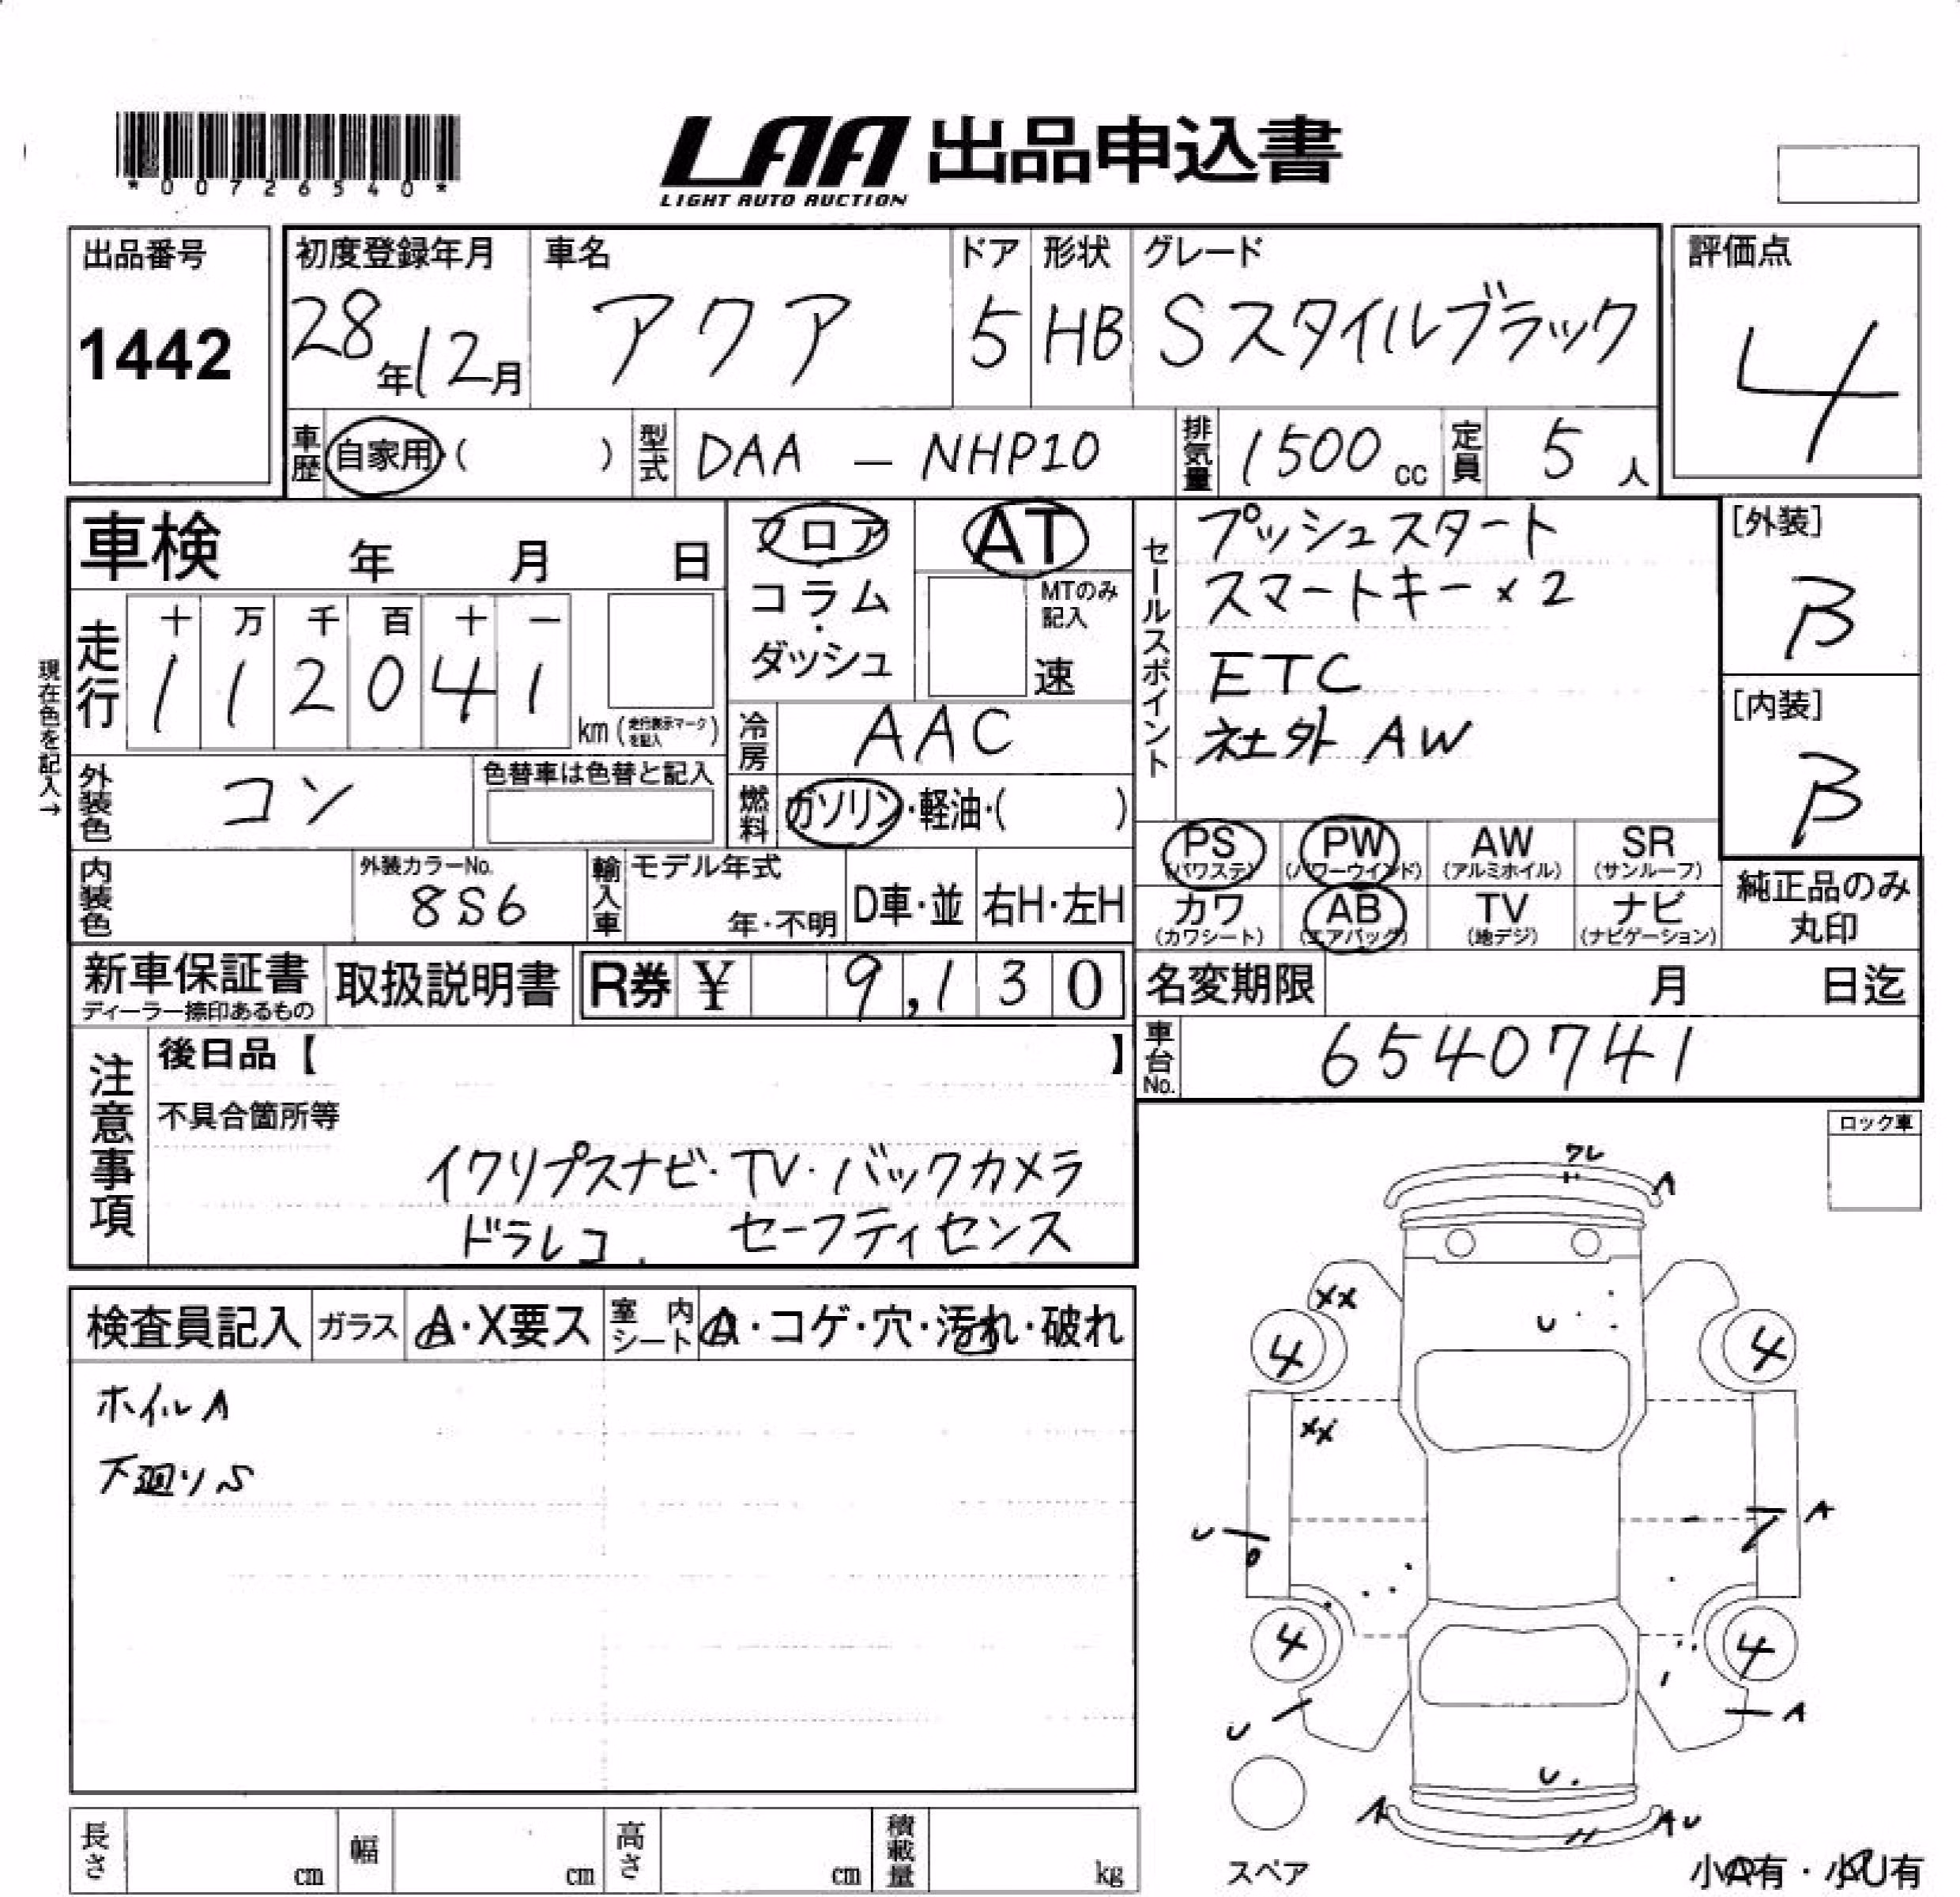 *00726540*
LAA 出品申込書
LIGHT AUTO AUCTION
出品番号
1442
初度登録年月
28年12月
車名
アクア
ドア
5
形状
HB
グレード
Sスタイルブラック
評価点
4
車歴
自家用 ( )
型式
DAA - NHP10
排気量
1500 cc
定員
5 人
車検 年 月 日
フロア・コラム・ダッシュ
AT
MTのみ記入
速
セールスポイント
プッシュスタート
スマートキー×2
ETC
社外 AW
[外装]
B
[内装]
B
現在色を記入→
走行
十 万 千 百 十 一
1 1 2 0 4 1
km (走行表示マークを記入)
冷房
AAC
外装色
コン
色替車は色替と記入
燃料
ガソリン・軽油・( )
PS (パワステ)
PW (パワーウインド)
AW (アルミホイル)
SR (サンルーフ)
カワ (カワシート)
AB (エアバッグ)
TV (地デジ)
ナビ (ナビゲーション)
純正品のみ丸印
内装色
外装カラーNo.
8S6
輸入車
モデル年式
年・不明
D車・並
右H・左H
新車保証書
ディーラー捺印あるもの
取扱説明書
R券 ¥ 9,130
名変期限 月 日迄
車台No.
6540741
注意事項
後日品【 】
不具合箇所等
イクリプスナビ・TV・バックカメラ
ドラレコ. セーフティセンス
ロック車
検査員記入
ガラス
A・X要ス
室内シート
A・コゲ・穴・汚れ・破れ
ホイルA
下廻りS
ワレ
A
XX
U
4
4
XX
U
A
4
4
U
A
U
A
AU
スペア
小A有・小U有
長さ cm
幅 cm
高さ cm
積載量 kg